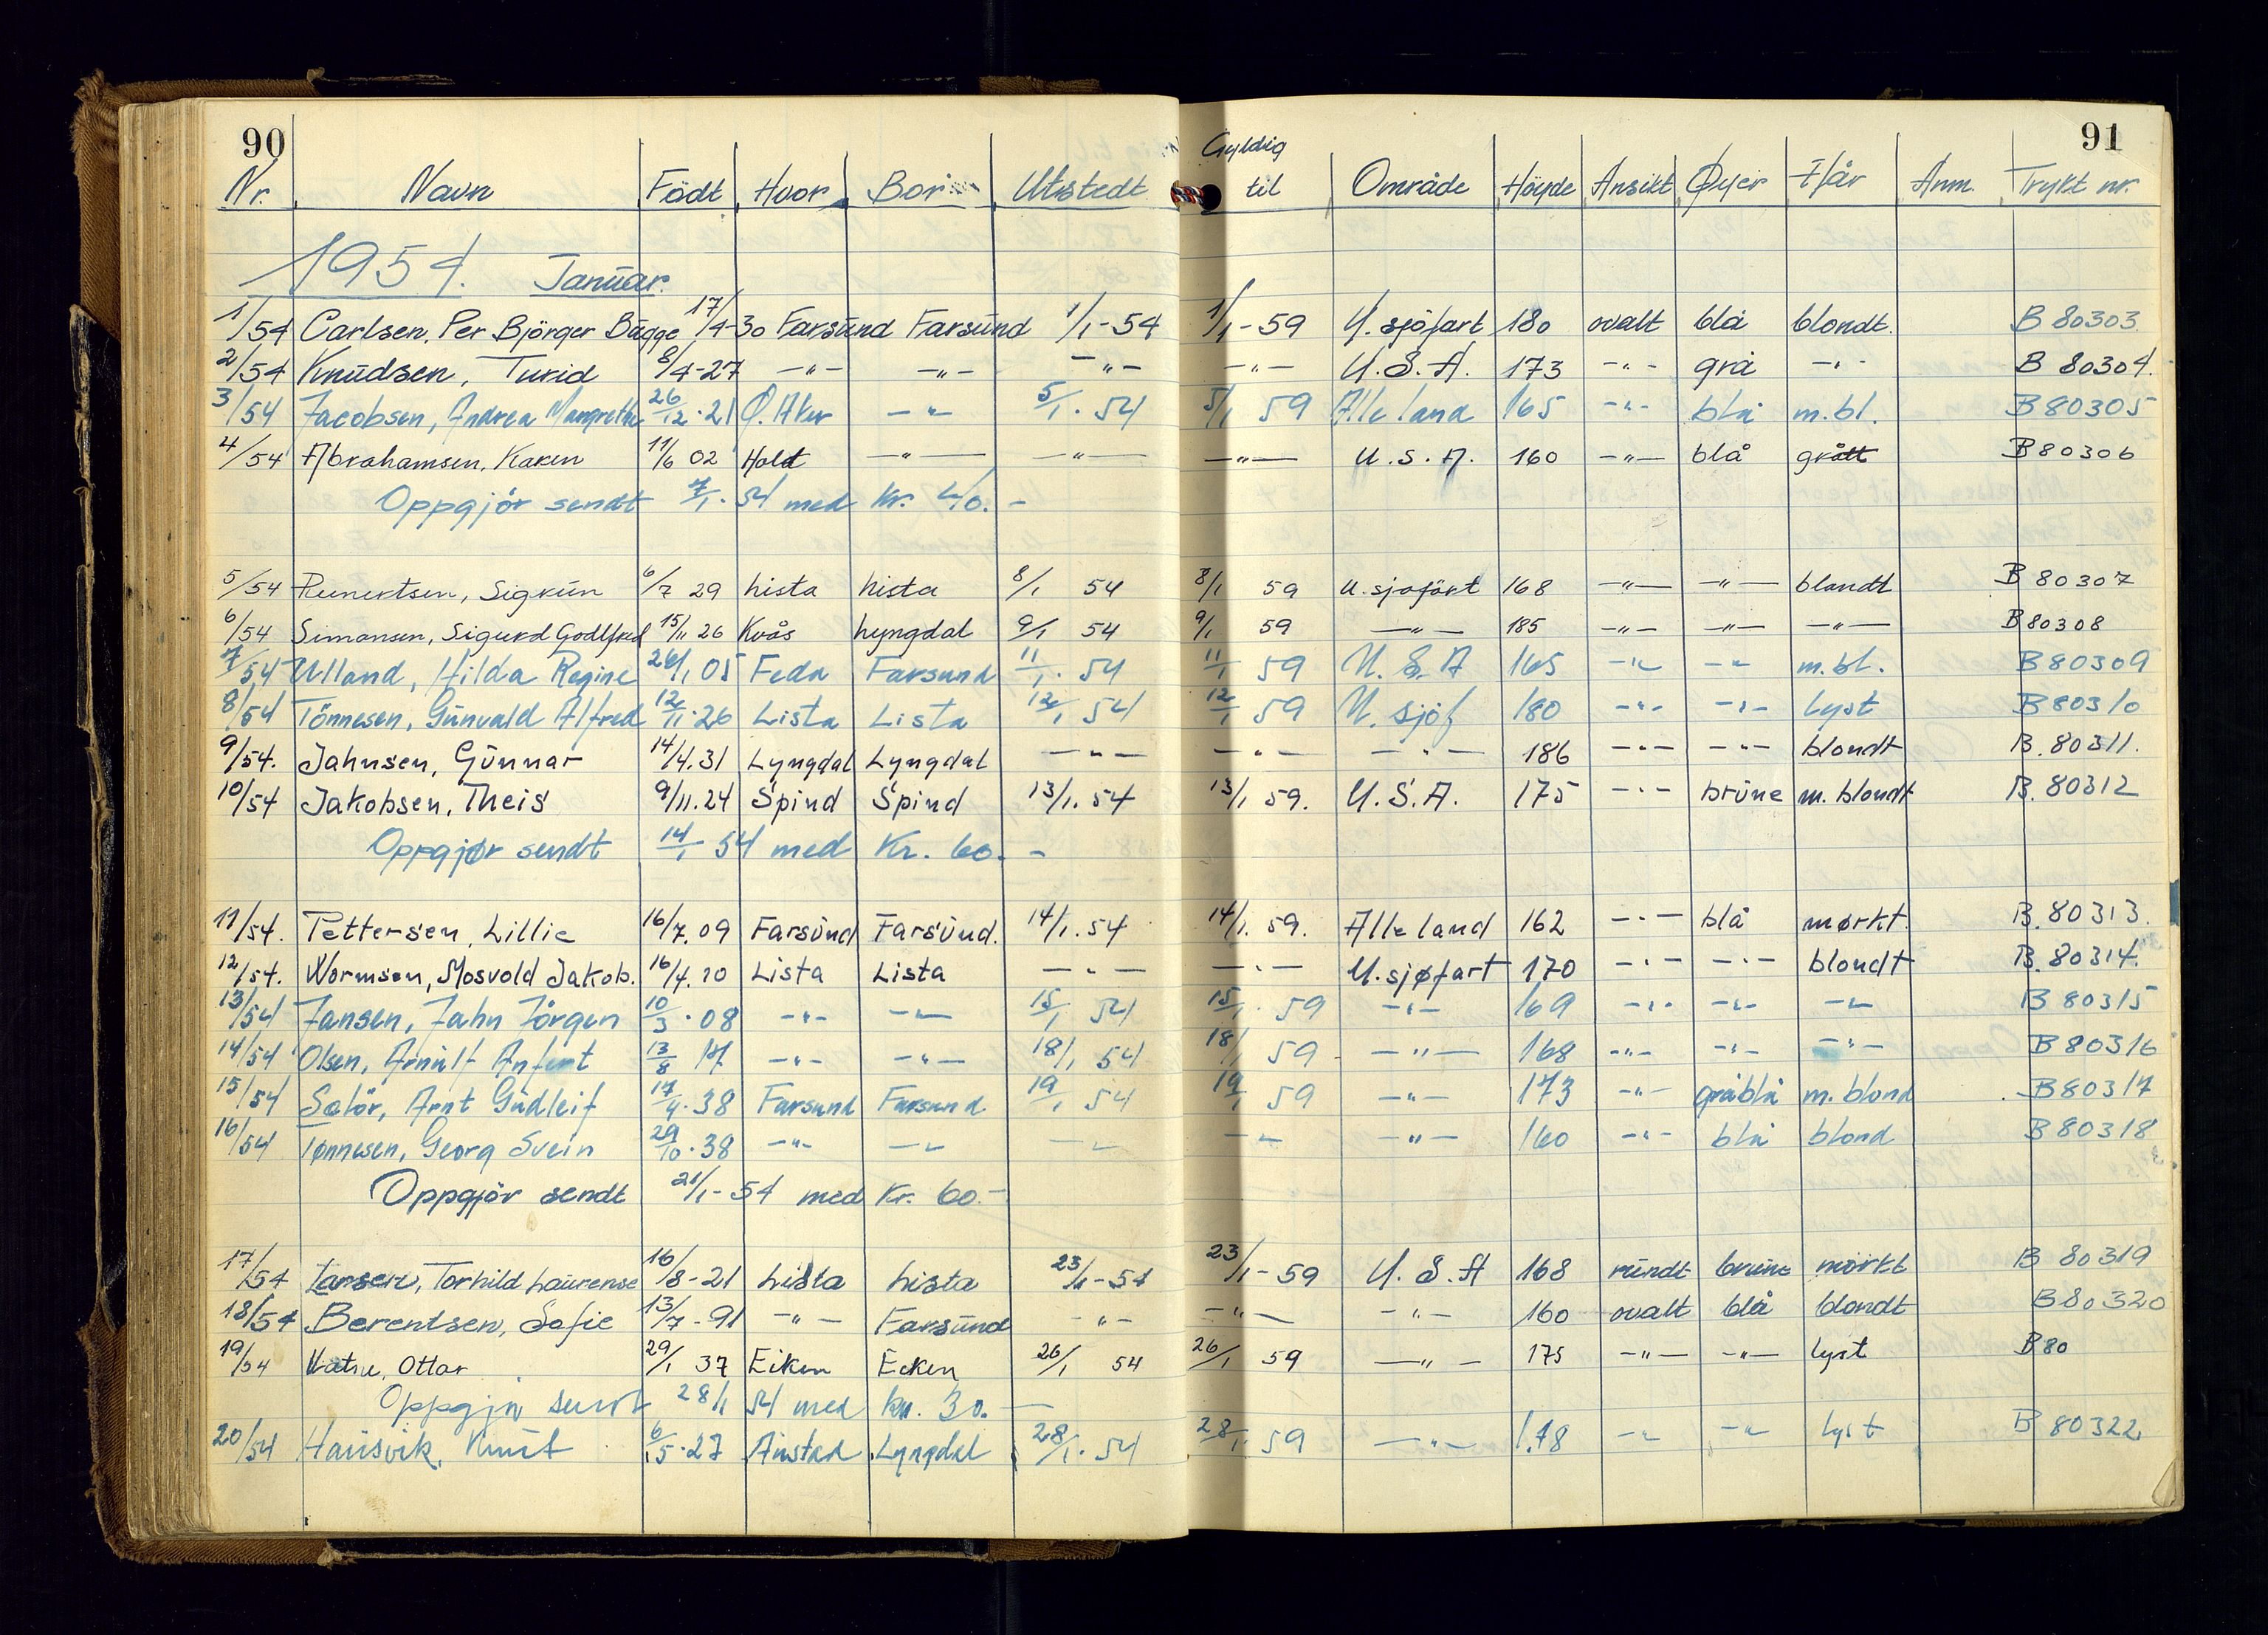 90
91
Nr. Navn Födt Hvor Bor Utstedt Gyldig til Område Höyde Ansikt Øyer Hår Anm. Trykt nr.
1954. Januar.
1/54 Carlsen, Per Björger Bugge 17/4-30 Farsund Farsund 1/1-54 1/1-59 U. sjöfart 180 ovalt blå blondt. B 80303
2/54 Knudsen, Turid 8/4-27 -"- -"- -"- -"- U.S.A. 173 -"- grå -"- B 80304.
3/54 Jacobsen, Andrea Margrethe 26/12.21 Ø. Aker -"- 5/1.54 5/1 59 Alle land 165 -"- blå m.bl. B 80305
4/54 Abrahamsen, Karen 11/6 02 Holt -"- -"- -"- U.S.A. 160 -"- blå grått B 80306
Oppgjör sendt 7/1.54 med Kr. 40.-
5/54 Reinertsen, Sigrun 6/7 29 Lista Lista 8/1 54 8/1 59 U. sjøfart 168 -"- -"- blondt B 80307
6/54 Simonsen, Sigurd Godtfred 15/11 26 Kvås Lyngdal 9/1 54 9/1 59 -"- 185 -"- -"- -"- B 80308
7/54 Ulland, Hilda Regine 26/1 05 Feda Farsund 11/1.54 11/1 59 U.S.A 165 -"- -"- m.bl. B 80309
8/54 Tönnesen, Gunvald Alfred 12/11.26 Lista Lista 12/1 54 12/1 59 U. sjöf 180 -"- -"- Lyst B 80310
9/54. Jahnsen, Gunnar 14/4.31 Lyngdal Lyngdal -"- -"- -"- 186 -"- -"- blondt B. 80311.
10/54 Jakobsen, Theis 9/11.24 Spind Spind 13/1.54 13/1 59. U.S.A. 175 -"- brune m. blondt B. 80312
Oppgjør sendt 14/1 54 med Kr. 60.-
11/54. Pettersen, Lillie 16/7.09 Farsund Farsund. 14/1.54 14/1.59. Alle land 162 -"- blå mørkt. B. 80313.
12/54. Wormsen, Mosvold Jakob. 16/4.20 Lista Lista -"- -"- U. sjøfart 170 -"- -"- blondt B. 80314.
13/54 Jansen, Jahn Jörgen 10/3.08 -"- -"- 15/1 54 15/1.59 -"- 169 -"- -"- -"- B 80315
14/54 Olsen, Arnulf 13/8 17 -"- -"- 18/1 54 18/1 59 -"- 168 -"- -"- -"- B 80316
15/54 Sælör, Arnt Gudleif 17/4.38 Farsund Farsund 19/1 54 19/1 59 -"- 173 -"- gråblå m. blond B 80317
16/54 Tønnesen, Georg Svein 29/10.38 -"- -"- -"- -"- -"- 160 -"- blå blond B 80318
Oppgjör sendt 21/1-54 med Kr. 60.-
17/54 Larsen, Torhild Laurense 16/8-21 Lista Lista 23/1-54 23/1-59 U.S.A 168 rundt brune mörkt B 80319
18/54 Berentsen, Sofie 13/7-91 -"- Farsund -"- -"- -"- 160 ovalt blå blondt B 80320
19/54 Ottar 29/1 37 Eiken Eiken 26/1 54 26/1 59 -"- 175 -"- -"- lyst B 80
Oppgjör sendt 28/1 54 med kr. 30.-
20/54 Hausvik, Knut 6/5.27 Austad Lyngdal 28/1.54 28/1 59 -"- 178 -"- -"- lyst B 80322